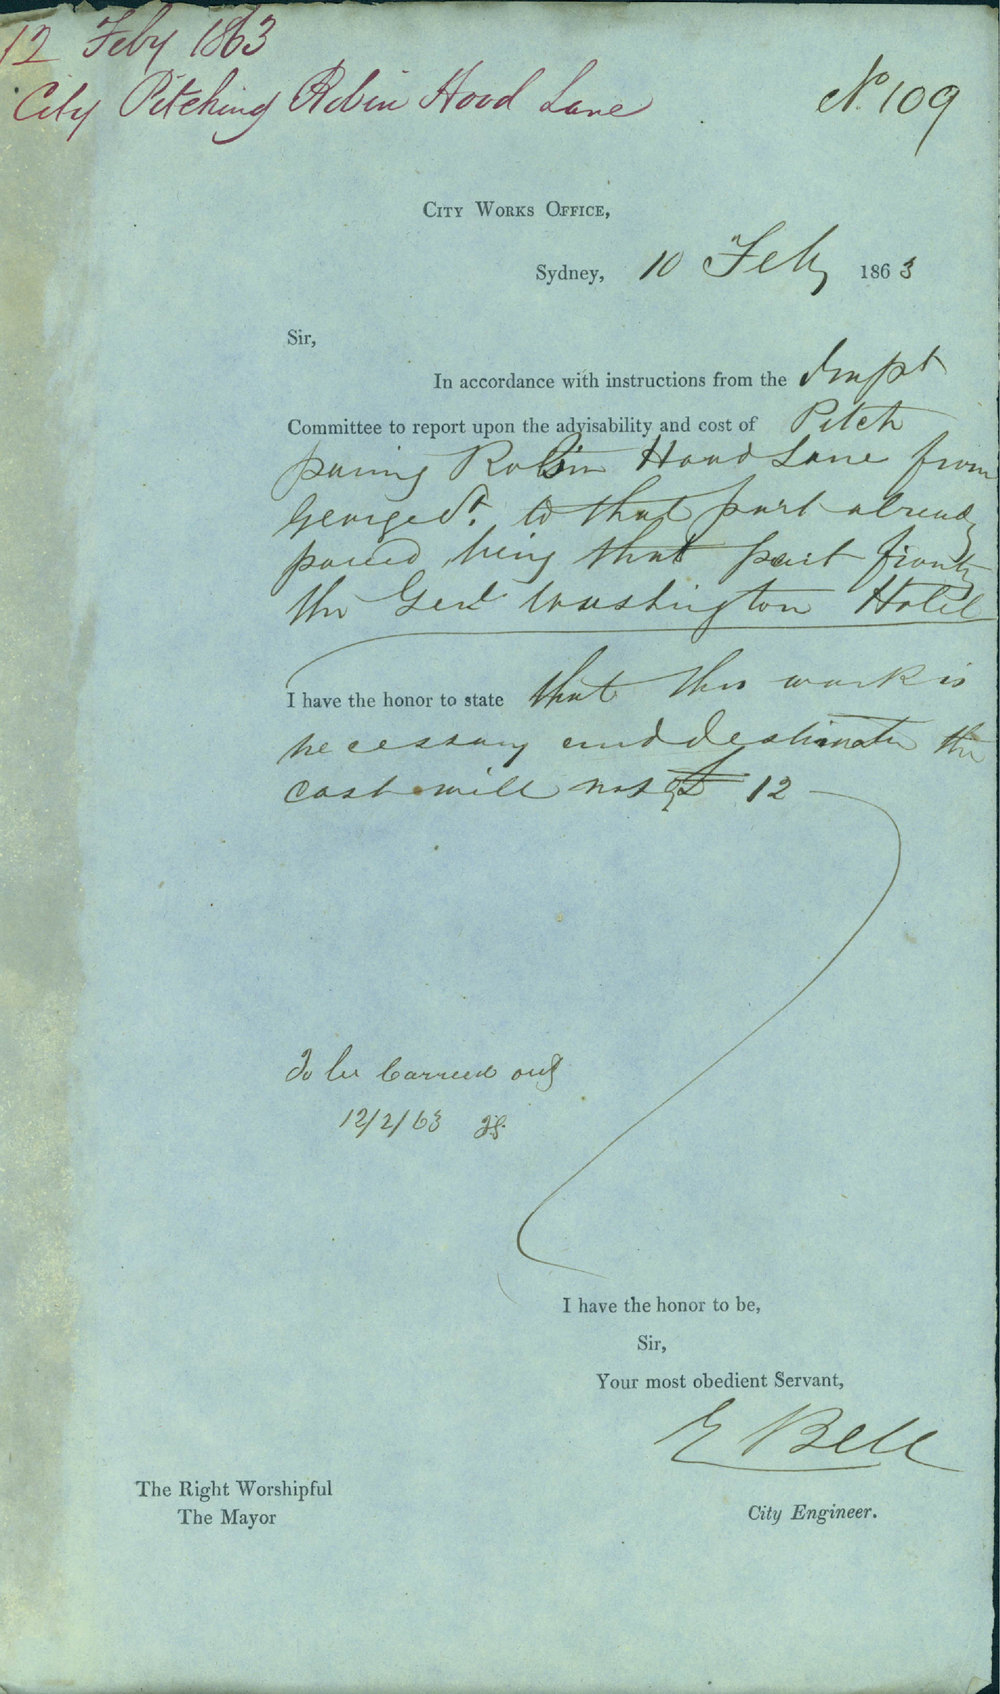 12 Feby 1863
City Pitching Robin Hood Lane
No. 109
City Works Office,
Sydney, 10 Feby 1863
Sir,
In accordance with instructions from the Impt
Committee to report upon the advisability and cost of Pitch
paving Robin Hood Lane from
George St. to that part already
paved being that part frontg
the Genl Washington Hotel
I have the honor to state that this work is
necessary and estimate the
cost will not £ 12
To be Carried out
12/2/63
I have the honor to be,
Sir,
Your most obedient Servant,
E Bell
City Engineer.
The Right Worshipful
The Mayor